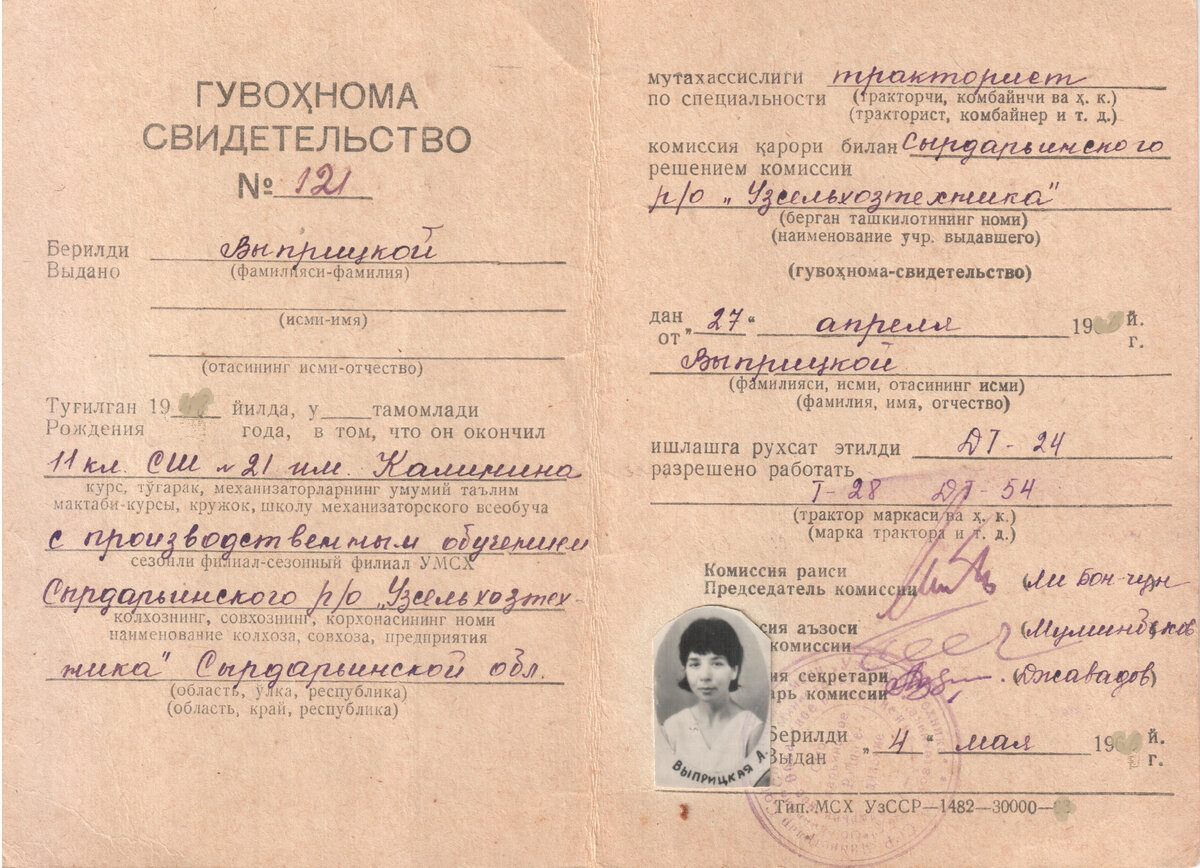 ГУВОҲНОМА
СВИДЕТЕЛЬСТВО
№ 121
Берилди Выприцкой
Выдано (фамилияси-фамилия)
(исми-имя)
(отасининг исми-отчество)
Туғилган 19 йилда, у тамомлади
Рождения года, в том, что он окончил
11 кл. СШ № 21 им. Калинина
курс, тўгарак, механизаторларнинг умумий таълим
мактаби-курсы, кружок, школу механизаторского всеобуча
с производственным обучением
сезонли филиал-сезонный филиал УМСХ
Сырдарьинского р/о „Узсельхозтех-
колхознинг, совхознинг, корхонасининг номи
наименование колхоза, совхоза, предприятия
ника" Сырдарьинской обл.
(область, ўлка, республика)
(область, край, республика)
мутахассислиги тракторист
по специальности (тракторчи, комбайнчи ва ҳ. к.)
(тракторист, комбайнер и т. д.)
комиссия қарори билан Сырдарьинского
решением комиссии
р/о „Узсельхозтехника"
(берган ташкилотининг номи)
(наименование учр. выдавшего)
(гувоҳнома-свидетельство)
дан „27“ апреля 19 й.
от г.
Выприцкой
(фамилияси, исми, отасининг исми)
(фамилия, имя, отчество)
ишлашга рухсат этилди ДТ-24
разрешено работать
Т-28 ДТ-54
(трактор маркаси ва ҳ. к.)
(марка трактора и т. д.)
Комиссия раиси
Председатель комиссии (Ли Бон-чун)
сия аъзоси (Муминбеков)
комиссии
я секретари (Джавадов)
арь комиссии
ВЫПРИЦКАЯ А.
Берилди „4“ мая 19 й.
Выдан г.
Тип. МСХ УзССР—1482—30000—